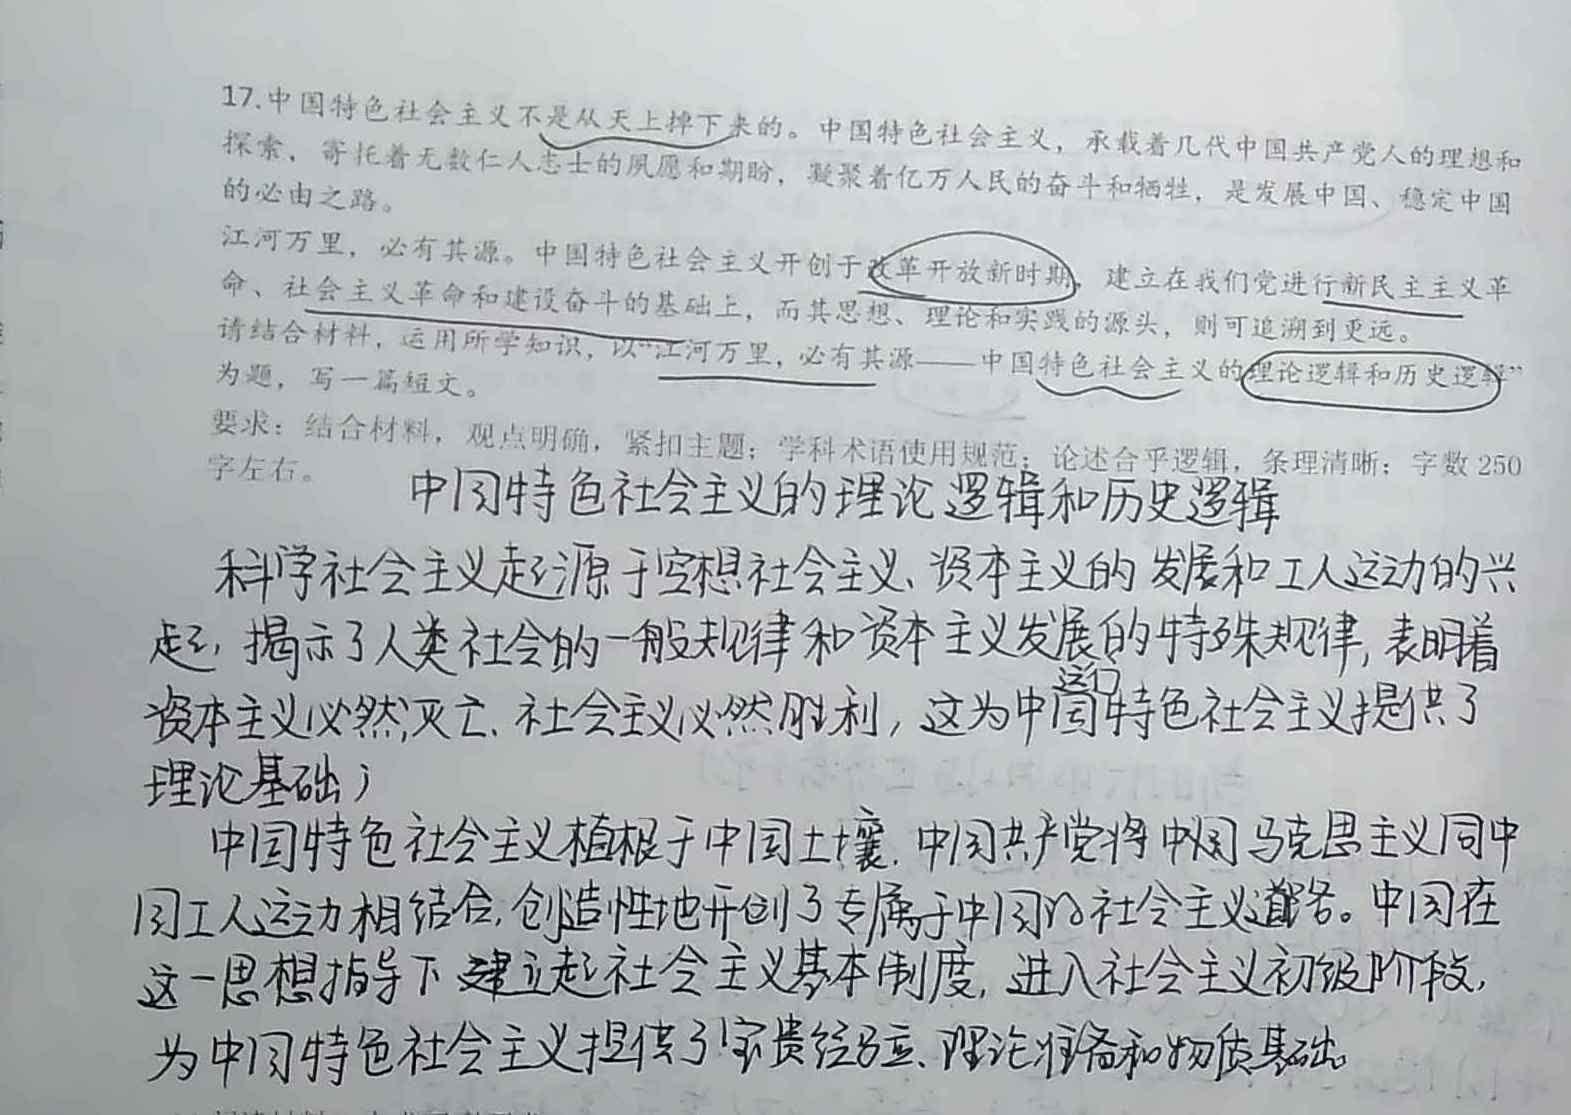 17.中国特色社会主义不是从天上掉下来的。中国特色社会主义，承载着几代中国共产党人的理想和
探索，寄托着无数仁人志士的夙愿和期盼，凝聚着亿万人民的奋斗和牺牲，是发展中国、稳定中国
的必由之路。
江河万里，必有其源。中国特色社会主义开创于改革开放新时期，建立在我们党进行新民主主义革
命、社会主义革命和建设奋斗的基础上，而其思想、理论和实践的源头，则可追溯到更远。
请结合材料，运用所学知识，以“江河万里，必有其源——中国特色社会主义的理论逻辑和历史逻辑”
为题，写一篇短文。
要求：结合材料，观点明确，紧扣主题；学科术语使用规范；论述合乎逻辑，条理清晰；字数250
字左右。
中国特色社会主义的理论逻辑和历史逻辑
科学社会主义起源于空想社会主义、资本主义的发展和工人运动的兴
起，揭示了人类社会的一般规律和资本主义发展的特殊规律，表明着
资本主义必然灭亡、社会主义必然胜利，这为中国特色社会主义提供了
理论基础；
中国特色社会主义植根于中国土壤，中国共产党将马克思主义同中
国工人运动相结合，创造性地开创了专属于中国的社会主义道路。中国在
这一思想指导下建立起社会主义基本制度，进入社会主义初级阶段，
为中国特色社会主义提供了宝贵经验、理论准备和物质基础。